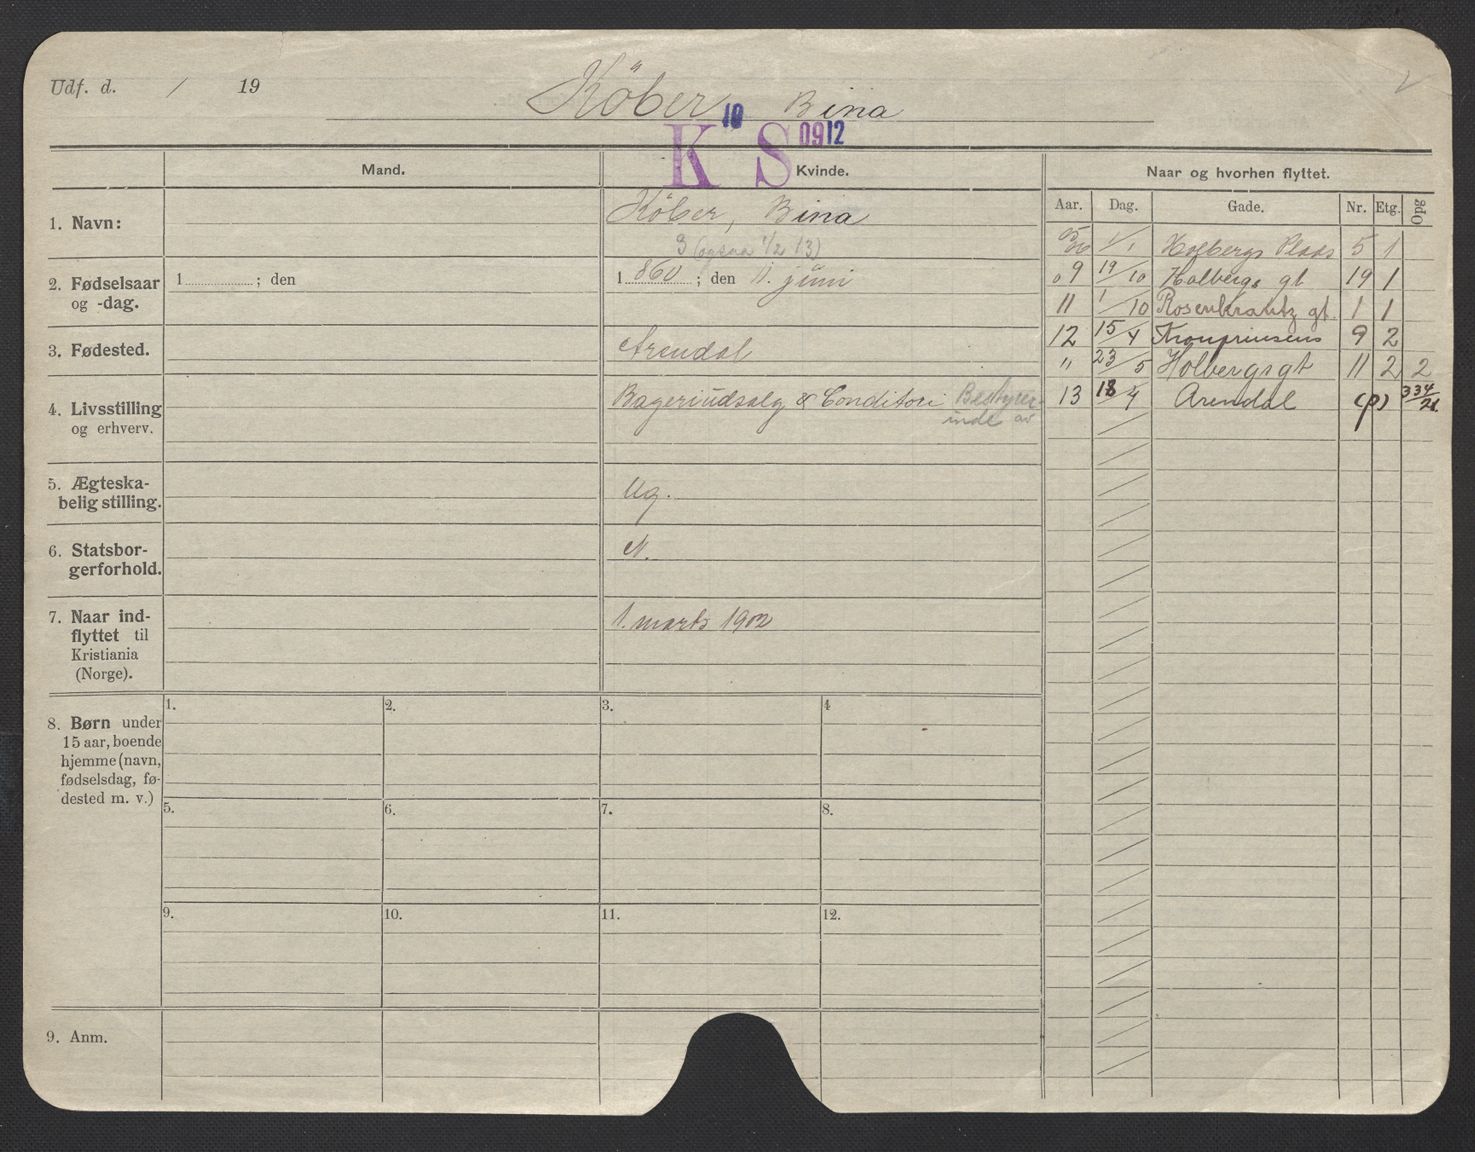 Udf. d. / 19
Köber, Bina
10
K S 0912
Mand. Kvinde. Naar og hvorhen flyttet.
Aar. Dag. Gade. Nr. Etg. Opg
1. Navn: Köber, Bina
3 (ogsaa 1/2 13)
2. Fødselsaar og -dag. 1 ; den
1 860 ; den 11. juni
3. Fødested. Arendal
4. Livsstilling og erhverv. Bageriudsalg & Conditori Bestyrer-
inde av
5. Ægteska-
belig stilling. Ug.
6. Statsbor-
gerforhold. N.
7. Naar ind-
flyttet til
Kristiania
(Norge).
1. marts 1902
8. Børn under
15 aar, boende
hjemme (navn,
fødselsdag, fø-
dested m. v.)
1. 2. 3. 4
5. 6. 7. 8.
9. 10. 11. 12.
9. Anm.
05/06 1/1 Holbergs Plads 5 1
09 19/10 Holbergs gt 19 1
11 1/10 Rosenkrantz gt. 1 1
12 15/4 Kronprinsens 9 2
" 23/5 Holbergsgt 11 2 2
13 18/4 Arendal (p) 334/21.